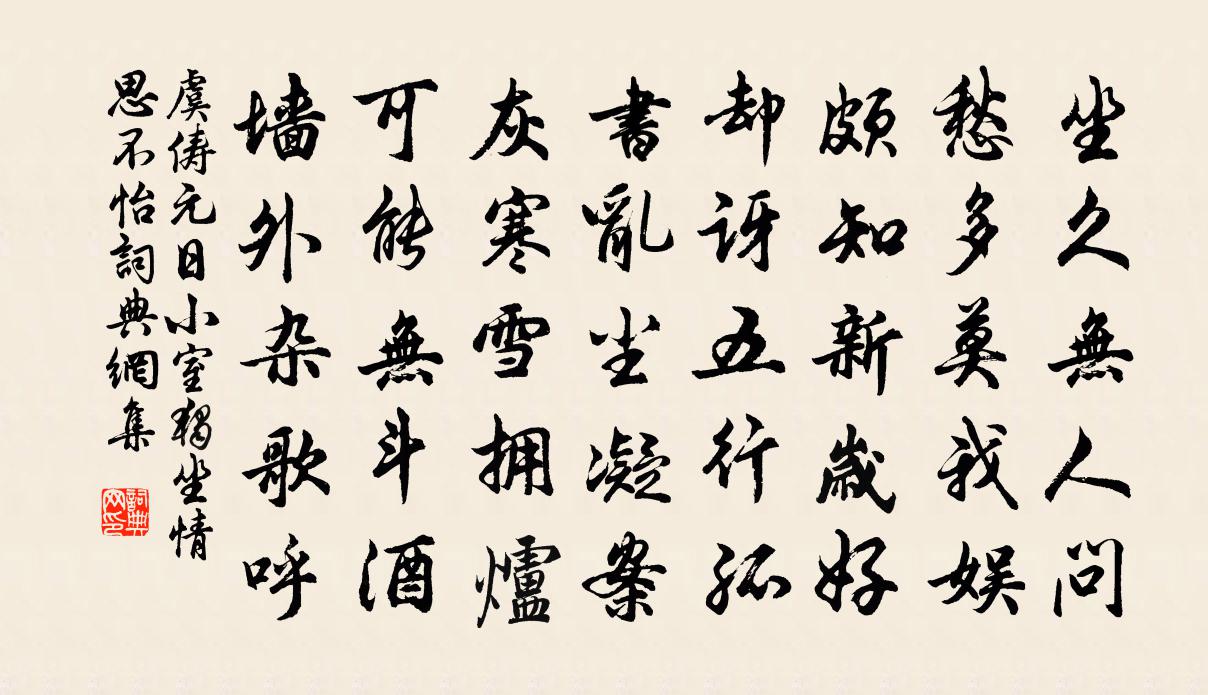 坐久無人問
愁多莫我娱
颇知新歲好
却訝五行孤
書亂尘凝案
灰寒雪拥爐
可能無斗酒
墙外杂歌呼
虞儔元日小室獨坐情
思不怡詞典網集
詞典网印